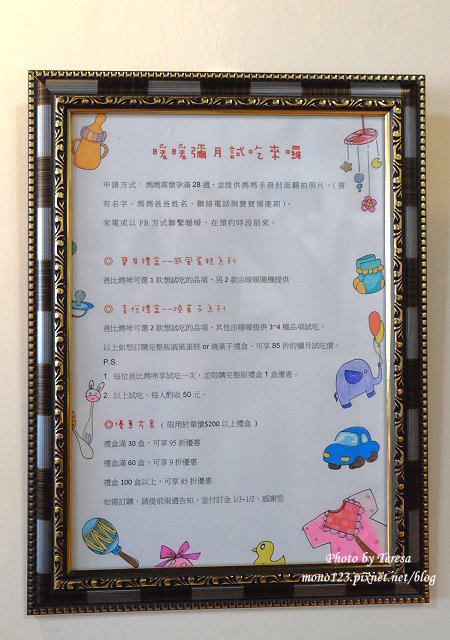 暖暖彌月試吃來囉
申請方式：媽媽需懷孕滿 28 週，並提供媽媽手冊封面翻拍照片。( 需
有名字、媽媽爸爸姓名、聯絡電話與寶寶預產期 )。
來電或以 FB 方式聯繫暖暖，在預約時段前來。
◎ 寶貝禮盒--感覺蛋糕系列
爸比媽咪可選 1 款想試吃的品項，另 2 款由暖暖隨機提供
◎ 喜悅禮盒--燒菓子系列
爸比媽咪可選 2 款想試吃的品項，其他由暖暖提供 3~4 種品項試吃。
以上如想訂購完整版戚風蛋糕 or 燒菓子禮盒，可享 85 折的彌月試吃價。
P.S.
1. 每位爸比媽咪享試吃一次，並限購完整版禮盒 1 盒優惠。
2. 以上試吃，每人酌收 50 元。
◎優惠方案 ( 限用於單價$200 以上禮盒 )
禮盒滿 30 盒，可享 95 折優惠
禮盒滿 60 盒，可享 9 折優惠
禮盒 100 盒以上，可享 85 折優惠
如需訂購，請提前兩週告知，並付訂金 1/3~1/2，感謝您
Photo by Teresa
mono123.pixnet.net/blog